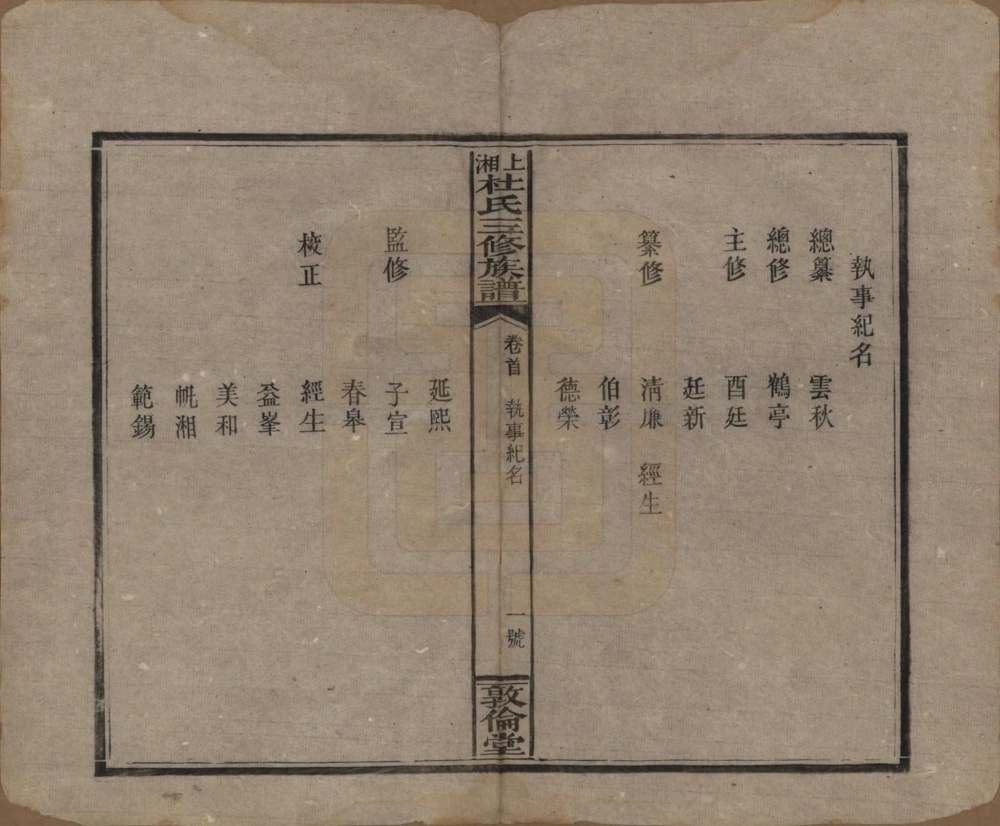 執事紀名
總纂 雲秋
總修 鶴亭
主修 酉廷
廷新
纂修 淸廉 經生
伯彰
德榮
上湘杜氏三修族譜
卷首 執事紀名
一號
敦倫堂
延熙
監修 子宣
春皋
校正 經生
益峯
美和
帆湘
範錫